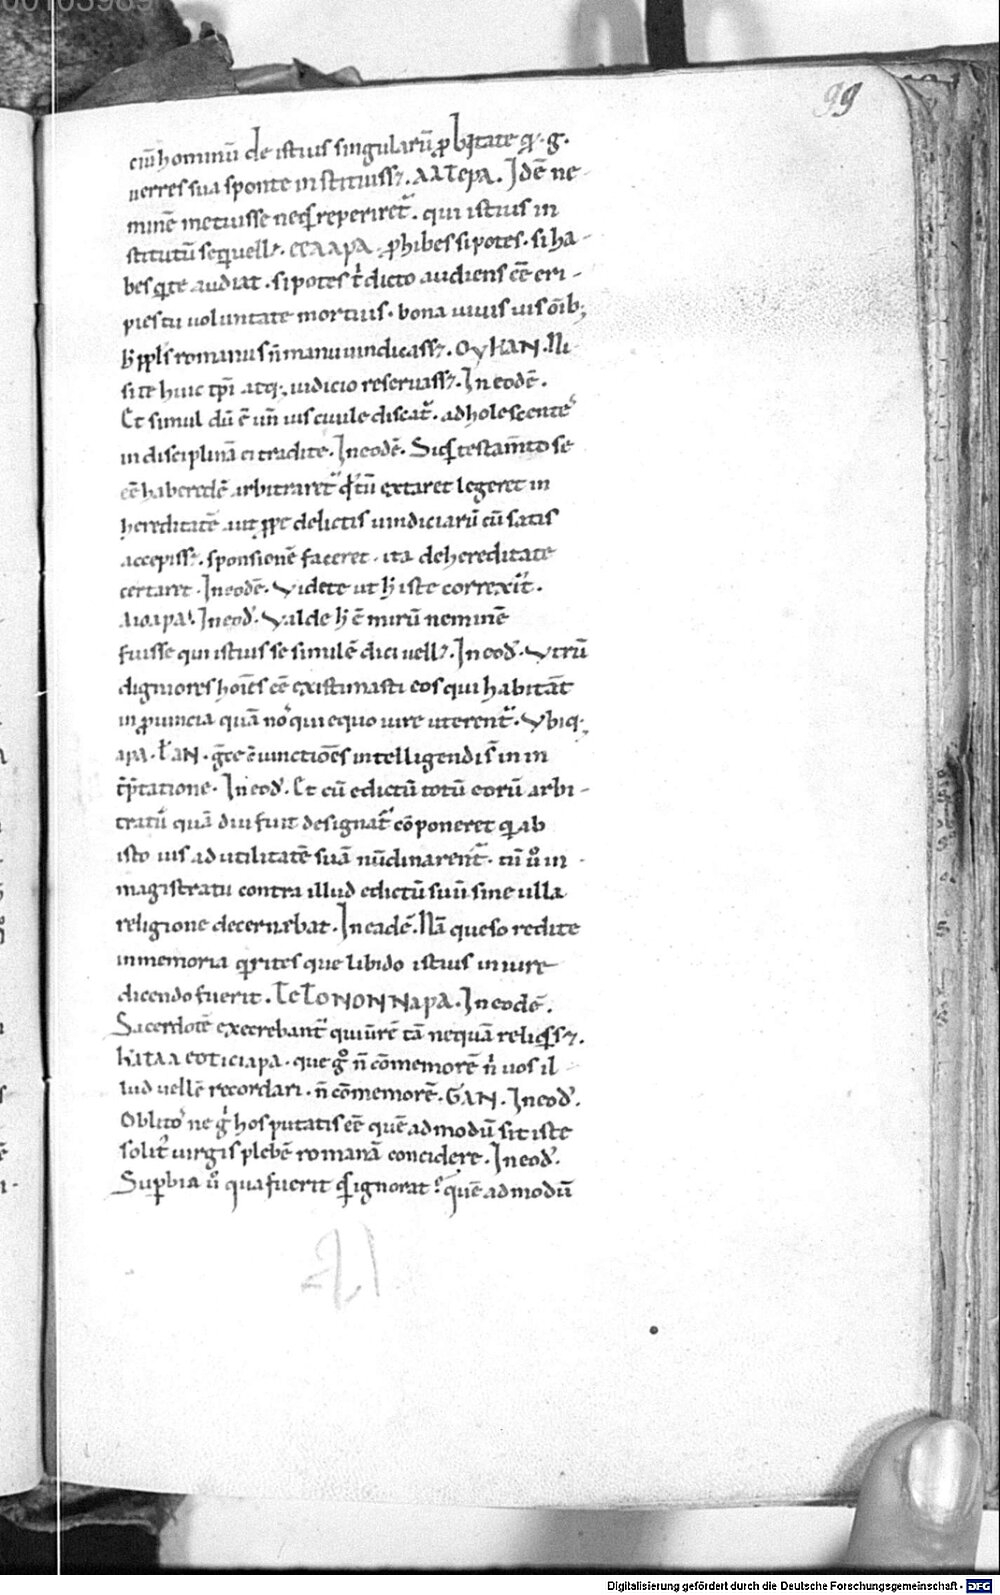 00103989
99
ciũ hominũ de istius singularũ ꝓbitate qͥ .g.
uerres sua sponte instituiss&. ΑΛΤΕΡΑ. Idē ne-
minē metuisse neq̇ reperiret̃. qui istius in
stitutũ seq̇ uell&. ϵϵΛΑΡΑ. ꝓhibes si potes. si ha-
bes q̇ te audiat. si potes t̃ dicto audiens eē eri-
pies tu uoluntate mortuis. bona uiuis uis oīb;
h̃ ppl̃s romanus ñ manu uindicass&. ΟΥΚΑΝ. Ni
si te huic tp̃i atq; iudicio reseruass&. In eodē.
Et simul dũ ē uñ ius ciuile discat̃. adholescente᷒
in disciplinā ei tradite. In eodē. Siq̇ testam̃to se
eē haberedē arbitraret̃ q̇ tũ extaret legeret in
hereditatē aut pp̃e delictis uindiciarũ cũ satis
accepiss&. sponsionē faceret. ita de hereditate
certaret. In eodē. Videte ut h̃ iste correxit̃.
ΑΙΟΑΡΑ. In eod̃. Valde h̃ ē mirũ neminē
fuisse qui istius se similē dici uell&. In eod̃. Vtrũ
digniores hoīes eē existimasti eos qui habitāt
in ꝓuincia quā no᷒ qui equo iure uterent̃. Vbiq;
ΑΡΑ. ƚΑΝ. g̃ce c̃iunctiōes intelligendis̃ in in
t̃p̃tatione. In eod̃. Et cũ edictũ totũ eorũ arbi-
tratũ quā diu fuit designat̃ cōponeret q̇ ab
isto ius ad utilitatē suā nũdinarent̃. tũ u͛o in-
magistratu contra illud edictũ suũ sine ulla
religione decernebat. In eadē. Nā queso redite
in memoria q̇rites que libido istius in iure
dicendo fuerit. In eodē.
Sacerdotē execrebant̃ qui ur̃ē tā nequā reliq̇ss&.
que g͛o ñ cōmemorē ñ uos il
lud uellē recordari. ñ cōmemorē. GΑΝ. In eod̃.
Oblito᷒ ne g̃ hos putatis eē quē ad modũ sit iste
solit᷒ uirgis plebē romanā concidere. In eod̃.
Sup̱bia u͛o qua fuerit q̇s ignorat? quē ad modũ
Digitalisierung gefördert durch die Deutsche Forschungsgemeinschaft - DFG